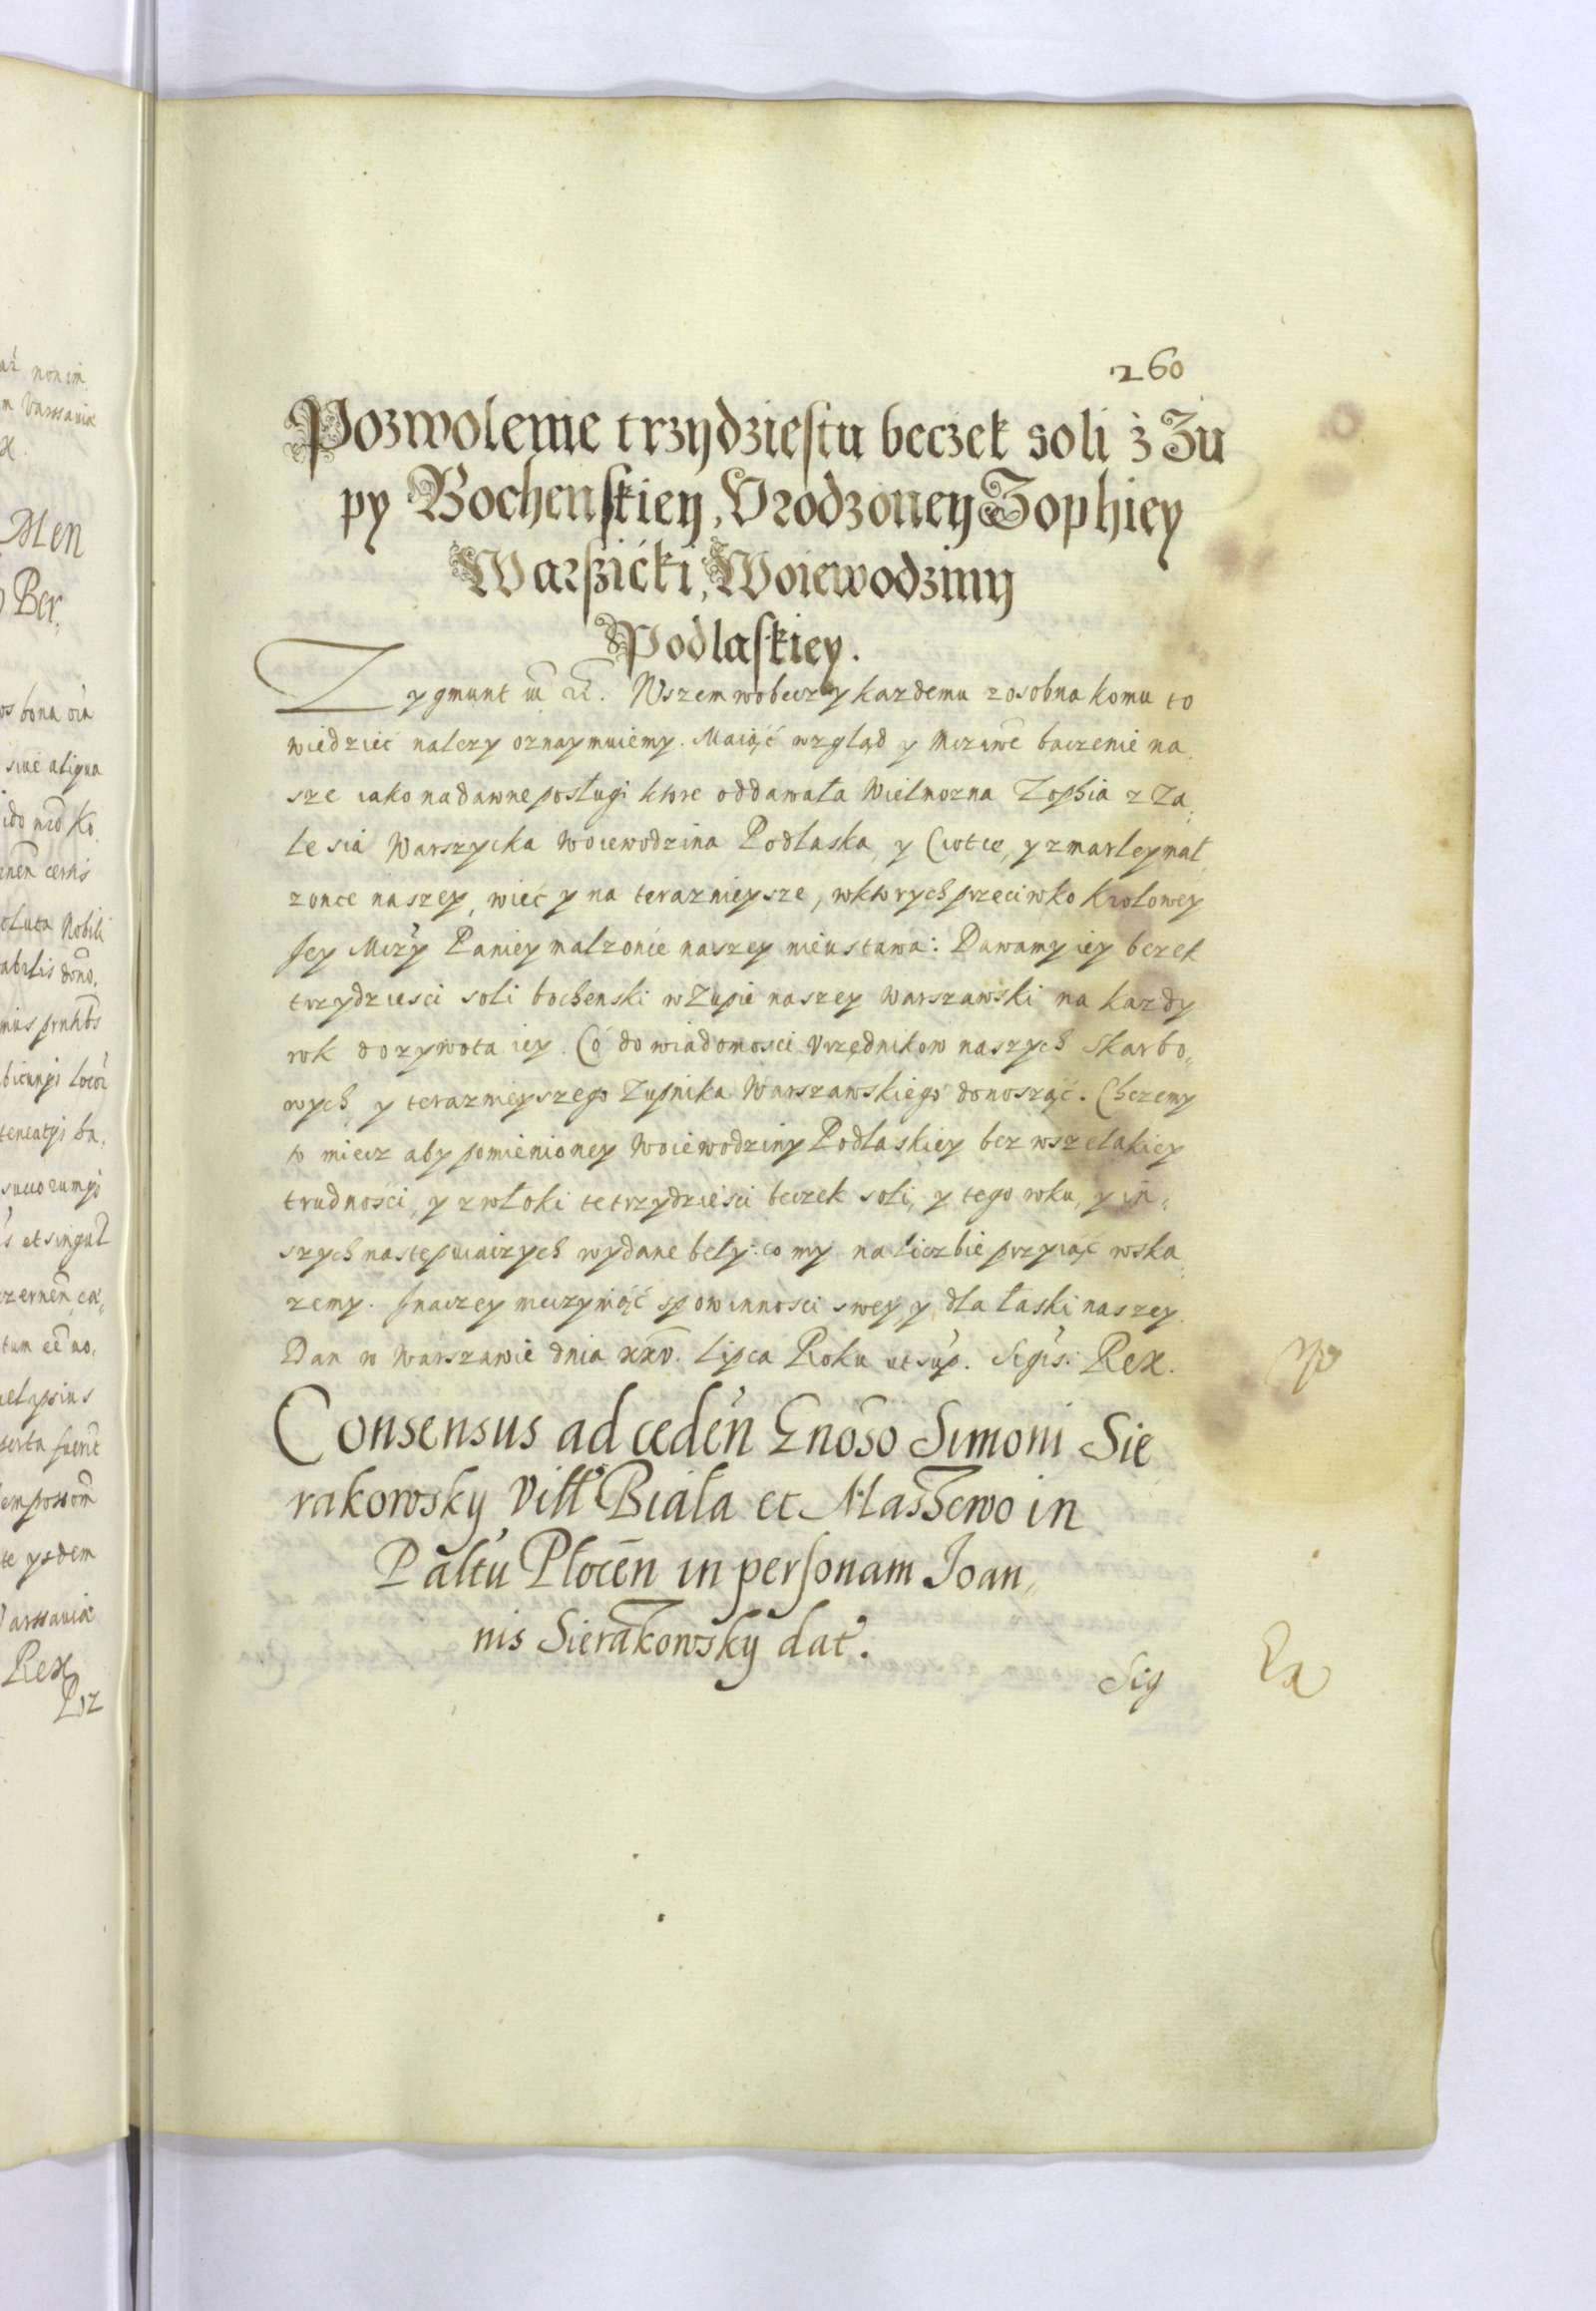 260
Pozwolenie trzydziestu beczek soli z Zu
py Bochenskiey, Vrodzoney Zophiey
Warszicki, Woiewodziny
Podlaskiey.
Zygmunt III etc. Wszem wobecz y kazdemu zosobna komu to
wiedzieć nalezy oznaymuiemy. Maiąć wzgląd y baczenie na
sze iako na dawne posługi ktore oddawała Wielmozna Zophia z Za,
lesia Warszycka Woiewodzina Podlaska, y Ciotce, y zmarley mał
zonce naszey, wieć y na teraznieysze, wktorych przeciwko Krolowey
Jey Mczy Paniey malzonce naszey nieustawa: Dawamy iey beczek
trzydziesci soli bochenski w Zupie naszey Warszawski na kazdy
rok do zywota iey. Co do wiadomosci Vrzędnikow naszych Skarbo,,
wych, y teraznieyszego Zupnika Warszawskiego donosząć. Chczemy
to miecz aby pomienioney Woiewodziny Podlaskiey bez wszelakiey
trudności, y zwłoki te trzydzieści beczek soli, y tego roku, y in,,
szych nastepuiaczych wydane beły: co my na liczbie przyiąć wska,
zemy. Jnaczey nieczyniąć s powinnosci swey, y dla łaski naszey.
Dan w Warszawie dnia xxv. Lipca Roku ut sup. Sigis: Rex.
Consensus ad ceden Gnoso Simoni Sie
rakowsky Vill Biała et Maszewo in
Paltu Plocen in personam Joan,,
nis Sierakowsky dat.
Sig
Men
Ber.
os bona
siue aliqua
Nobili
Warssauiæ
Rex